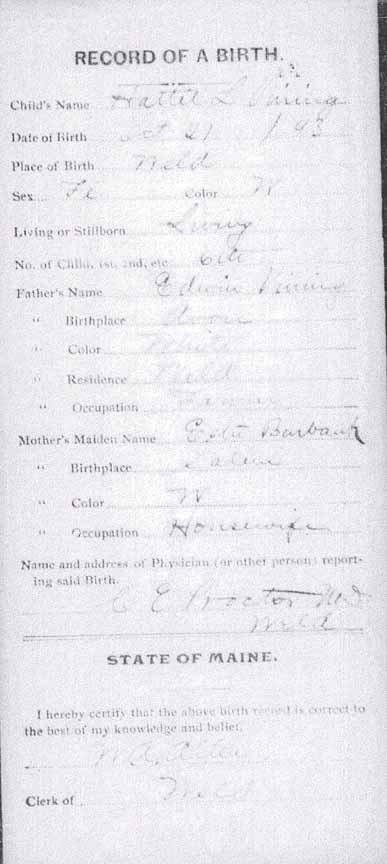 RECORD OF A BIRTH.
Child's Name Hattie L Vining
Date of Birth
Place of Birth Weld
Sex Fe Color W
Living or Stillborn Living
No. of Child, 1st, 2nd, etc 6th
Father's Name Edwin Vining
" Birthplace Avon
" Color White
" Residence Weld
" Occupation Farmer
Mother's Maiden Name Burbank
" Birthplace Salem
" Color W
" Occupation Housewife
Name and address of Physician (or other person) report-
ing said Birth.
C E Proctor MD
Weld
STATE OF MAINE.
I hereby certify that the above birth record is correct to
the best of my knowledge and belief.
Clerk of Weld